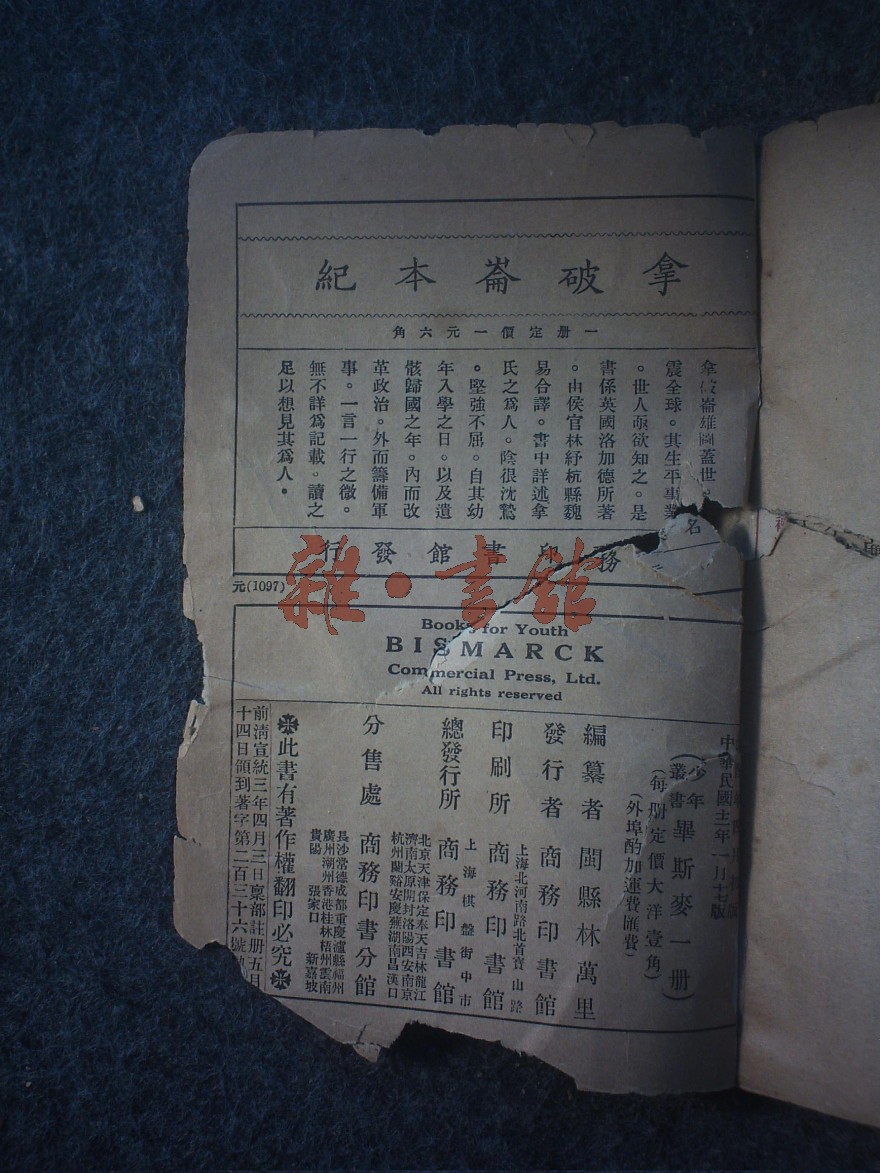 拿破崙本紀
一册定價一元六角
拿破崙雄圖蓋世
震全球。其生平事業
。世人亟欲知之。是
書係英國洛加德所著
。由侯官林紓杭縣魏
易合譯。書中詳述拿
氏之爲人。陰很沈鷙
。堅強不屈。自其幼
年入學之日。以及遺
骸歸國之年。內而改
革政治。外而籌備軍
事。一言一行之微。
無不詳爲記載。讀之
足以想見其爲人。
務印書館發行
元(1097)
雜·書館
Books for Youth
BISMARCK
Commercial Press, Ltd.
All rights reserved
中華民國十一年一月十七版
(少年叢書畢斯麥一册)
(每册定價大洋壹角)
(外埠酌加運費匯費)
編纂者 閩縣林萬里
發行者 商務印書館
上海北河南路北首寶山路
印刷所 商務印書館
上海棋盤街中市
總發行所 商務印書館
北京天津保定奉天吉林龍江
濟南太原開封洛陽西安南京
杭州蘭谿安慶蕪湖南昌漢口
分售處 商務印書分館
長沙常德成都重慶瀘縣福州
廣州潮州香港桂林梧州雲南
貴陽 張家口 新嘉坡
此書有著作權翻印必究
前清宣統三年四月三日稟部註册五月
十四日領到著字第二百三十六號
名